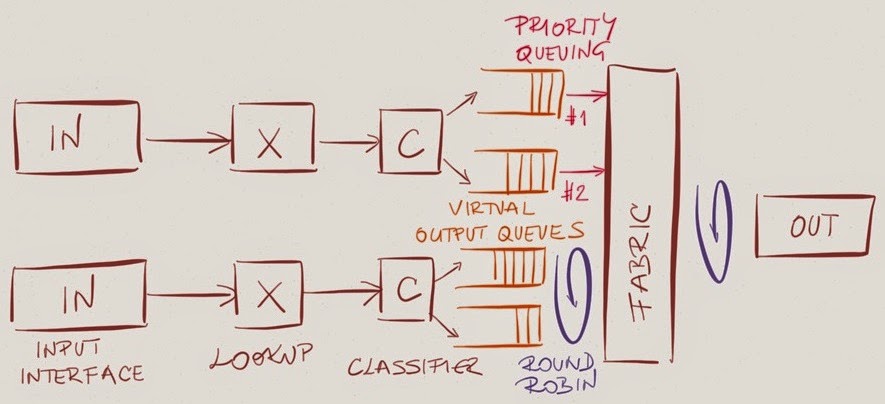 PRIORITY
QUEUING
IN
X
C
#1
#2
VIRTUAL
OUTPUT QUEUES
FABRIC
OUT
IN
X
C
INPUT
INTERFACE
LOOKUP
CLASSIFIER
ROUND
ROBIN